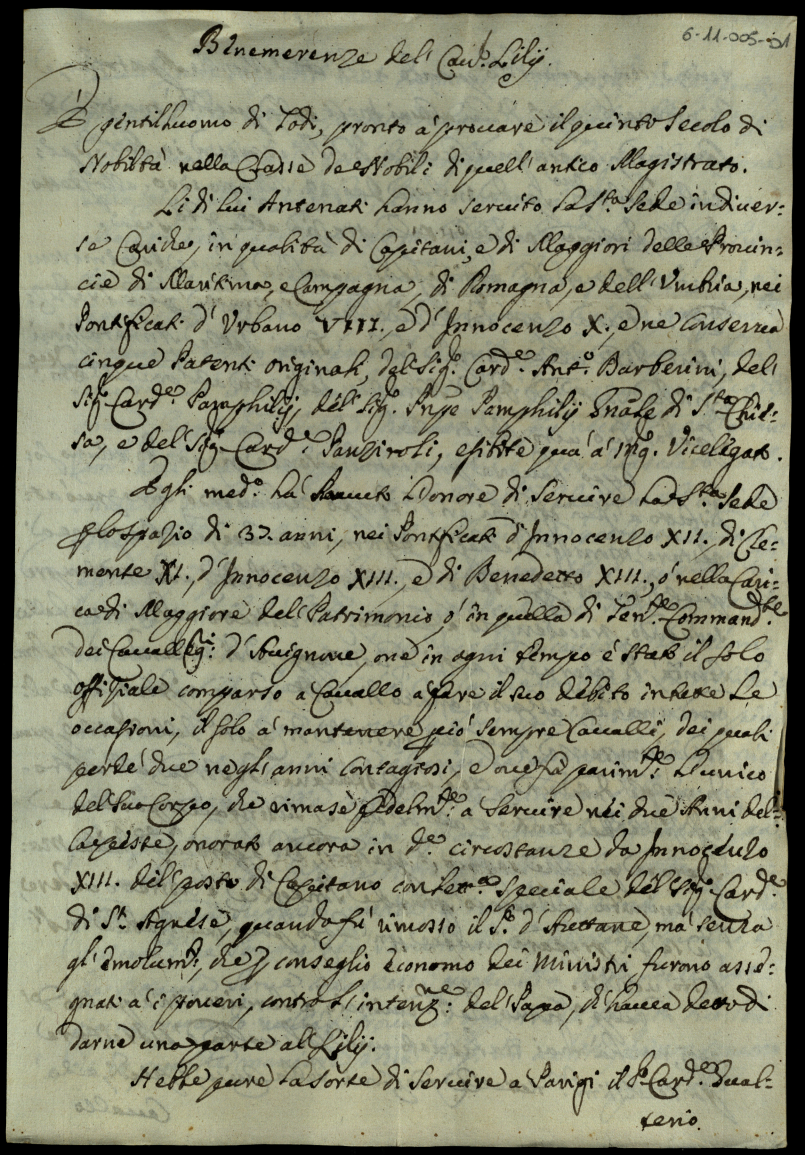 6-11-005-01
Benemerenze del Cav.r Lilij.
È gentilhuomo di Todi, pronto à provare il quinto secolo di
Nobiltà nella Classe de Nobili di quell'antico Magistrato.
Li di lui Antenati hanno servito la S.ta Sede in diver-
se Cariche, in qualità di Capitani, e di Maggiori delle Provin-
cie di Maritima, e Campagna, di Romagna, e dell'Umbria, nei
Pontificati d'Urbano VIII., e d'Innocenzo X., e ne conserva
cinque Patenti originali, del Sig.r Card.e Ant.o Barberini, del
Sig.r Card.e Pamphilij, del Sig.r Pnpe Pamphilij Gnale di S.ta Chie-
sa, e del Sig.r Card.e Panziroli, esibite quà à Vicelegato.
Egli med.o hà havuto l'onore di servire la S.ta Sede
lo spazio di 37. anni, nei Pontificati d'Innocenzo XII., di Cle-
mente XI., d'Innocenzo XIII., e di Benedetto XIII., ò nella Cari-
ca di Maggiore del Patrimonio, ò in quella di Ten.te Command.te
dei Cavallegi: d'Avignone, ove in ogni tempo è stato il solo
offiziale comparso a Cavallo à fare il suo debito in tutte le
occasioni, il solo à mantenere perciò sempre Cavalli, dei quali
perdè due negl'anni contagiosi, e ove fù parim.te l'unico
del suo Corpo, che rimase fedelm.te a servire nei due Anni del-
la peste, onorato ancora in d.e circostanze da Innocenzo
XIII. del posto di Capitano con lett.a speciale del Sig.r Card.e
di S.t Agnese, quando fù rimosso il S.r d'Aultane, mà senza
gl'emolum.ti, che p conseglio economo dei Ministri furono asse-
gnati a' i poveri, contro l'intenz.ne del Papa, ch'havea detto di
darne una parte al Lilij.
Hebbe pure la sorte di servire a Parigi il S.r Card.e Gual-
terio.